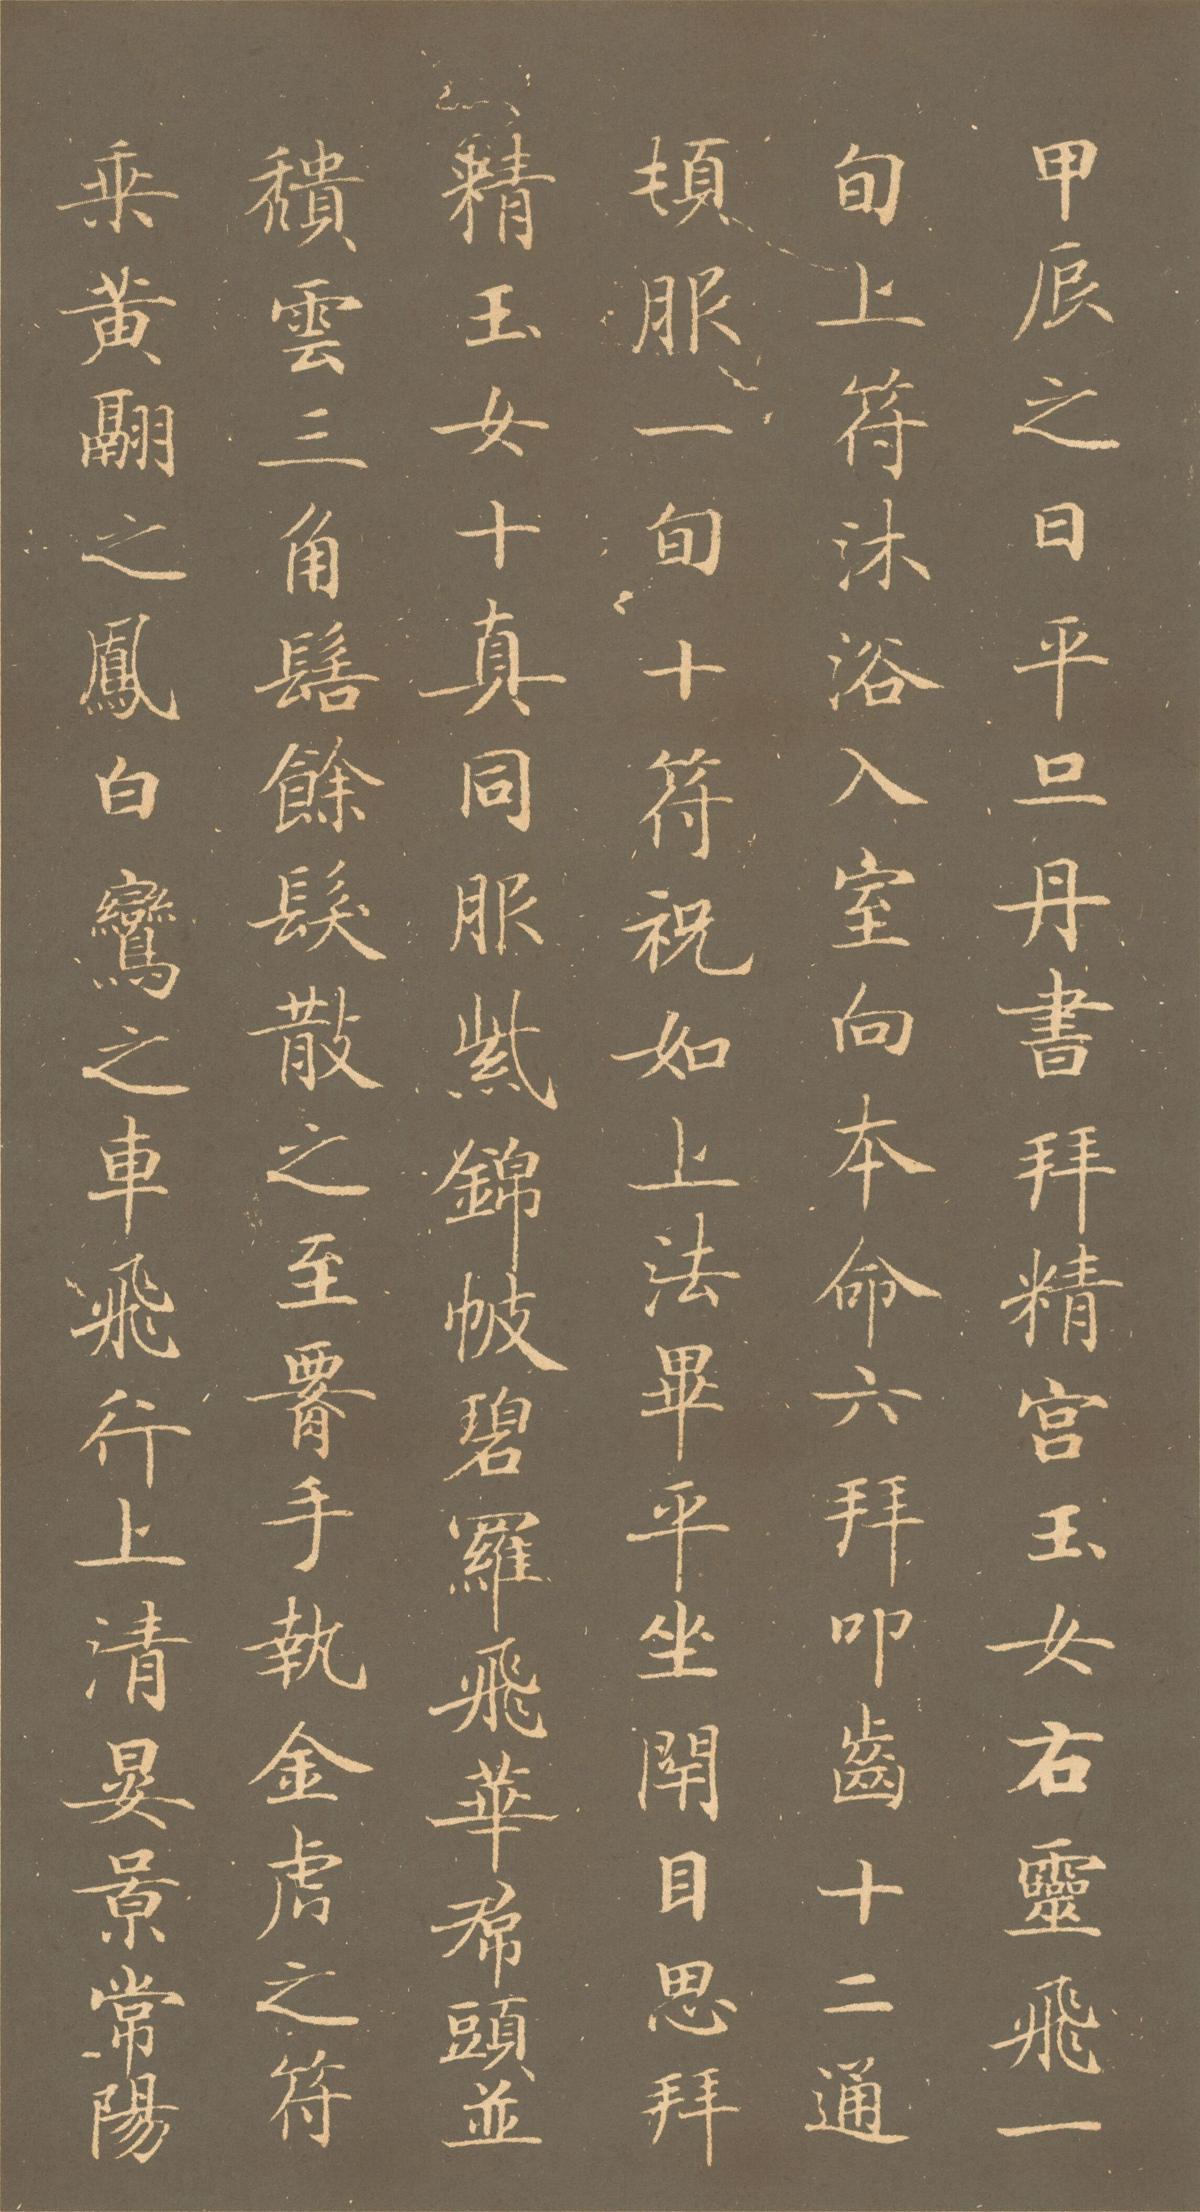 甲辰之日平旦丹書拜精宮玉女右靈飛一
旬上符沐浴入室向本命六拜叩齒十二通
頓服一旬十符祝如上法畢平坐閇目思拜
精玉女十真同服紫錦帔碧羅飛華帬頭並
穨雲三角髻餘髮散之至𦝫手執金虎之符
乘黃翮之鳳白鸞之車飛行上清晏景常陽